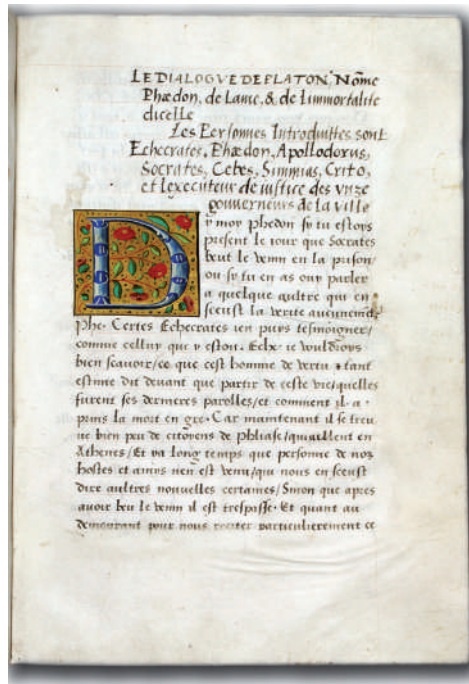 LE DIALOGVE DE PLATON Nõme
Phædon, de Lame, & de Limmortalite
dicelle
Les Personnes Introduittes sont
Echecrates, Phædon, Apollodorus,
Socrates, Cebes, Simmias, Crito,
et Lexecuteur de iustice des vnze
gouuerneurs de la ville
DY moy Phedon sy tu estoys
present le iour que Socrates
beut le venin en la prison/
ou sy tu en as ouy parler
a quelque aultre qui en
sceust la verite aucunemẽt
phe. Certes Echecrates ien puys tesmoigner/
comme celluy que y estoit. Eche. ie vouldroys
bien scauoir/ce que cest homme de vertu & tant
estime dit deuant que partir de ceste vie/quelles
furent ses dernieres parolles/et comment il a
prins la mort en gre. Car maintenant il se treu
ue bien peu de citoyens de phliase/qui aillent en
Athenes/Et va long temps que personne de noz
hostes et amys nen est venu/qui nous en sceust
dire aultres nouuelles certaines/Sinon que apres
auoir beu le venin il est trespasse. Et quant au
demourant pour nous reciter particulierement ce